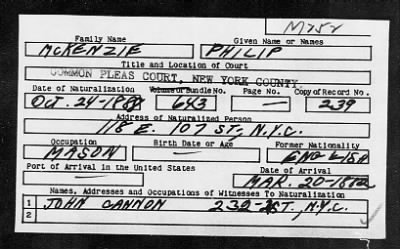 M252
Family Name Given Name or Names
McKENZIE PHILIP
Title and Location of Court
COMMON PLEAS COURT, NEW YORK COUNTY.
Date of Naturalization Volume or Bundle No. Page No. Copy of Record No.
OCT. 24-1888 643 — 239
Address of Naturalized Person
118 E. 107 ST., N.Y.C.
Occupation Birth Date or Age Former Nationality
MASON — ENGLISH
Port of Arrival in the United States Date of Arrival
MAR. 20-
Names, Addresses and Occupations of Witnesses To Naturalization
1 JOHN CANNON 232- ST., N.Y.C.
2